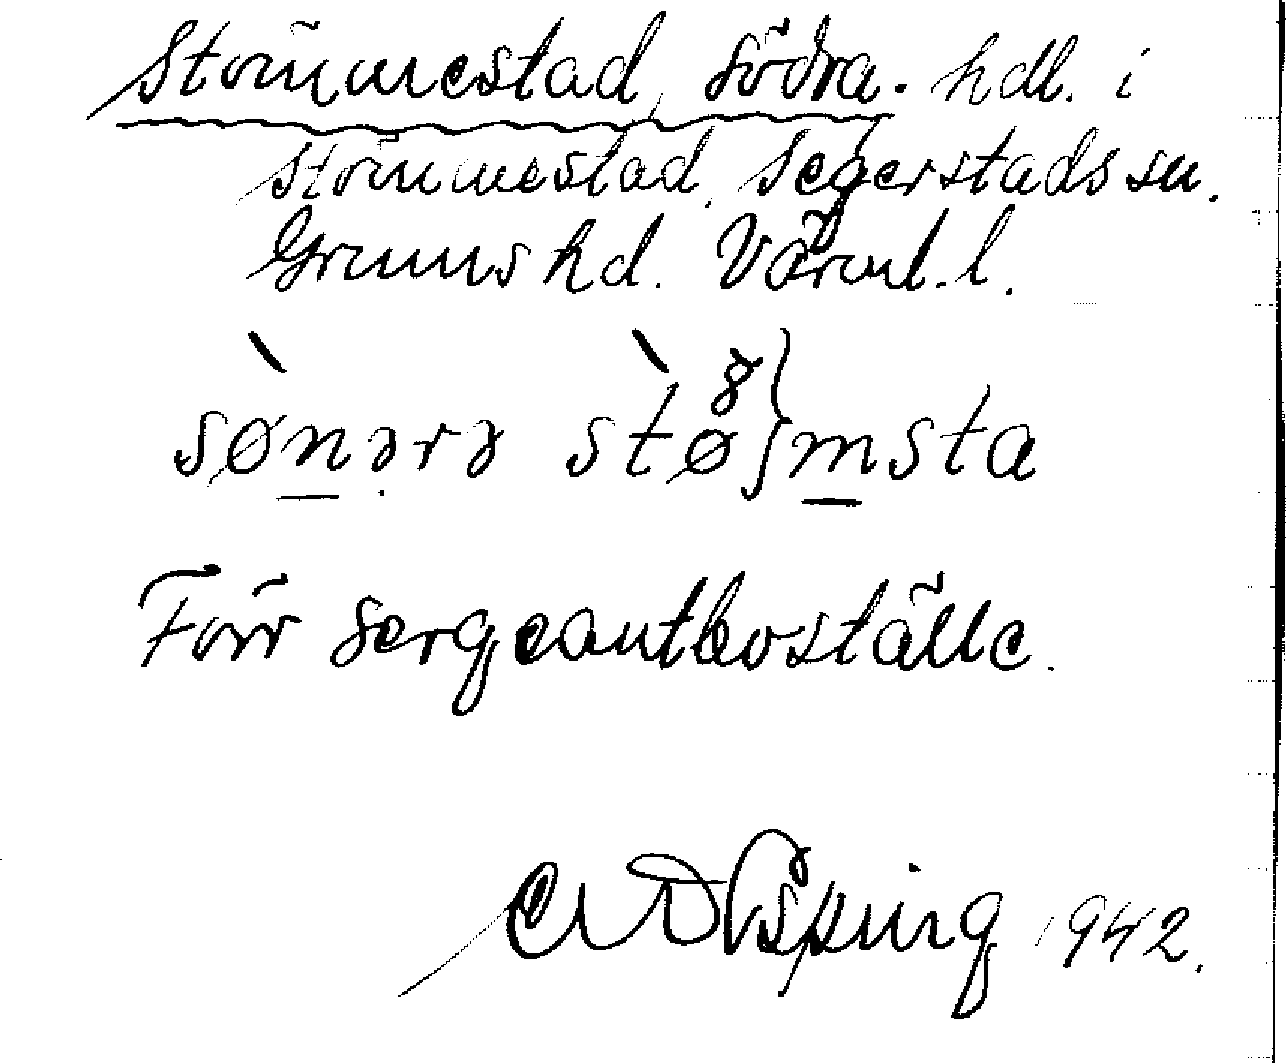 Stömmestad, Södra. hdl. i
Stömmestad. Segerstads sn.
Grums hd. Värml. l.
sønərə støʃmsta
Förr sergeantboställe.
1942.